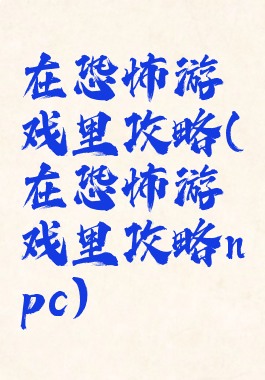 在恐怖游
戏里攻略(
在恐怖游
戏里攻略n
pc)